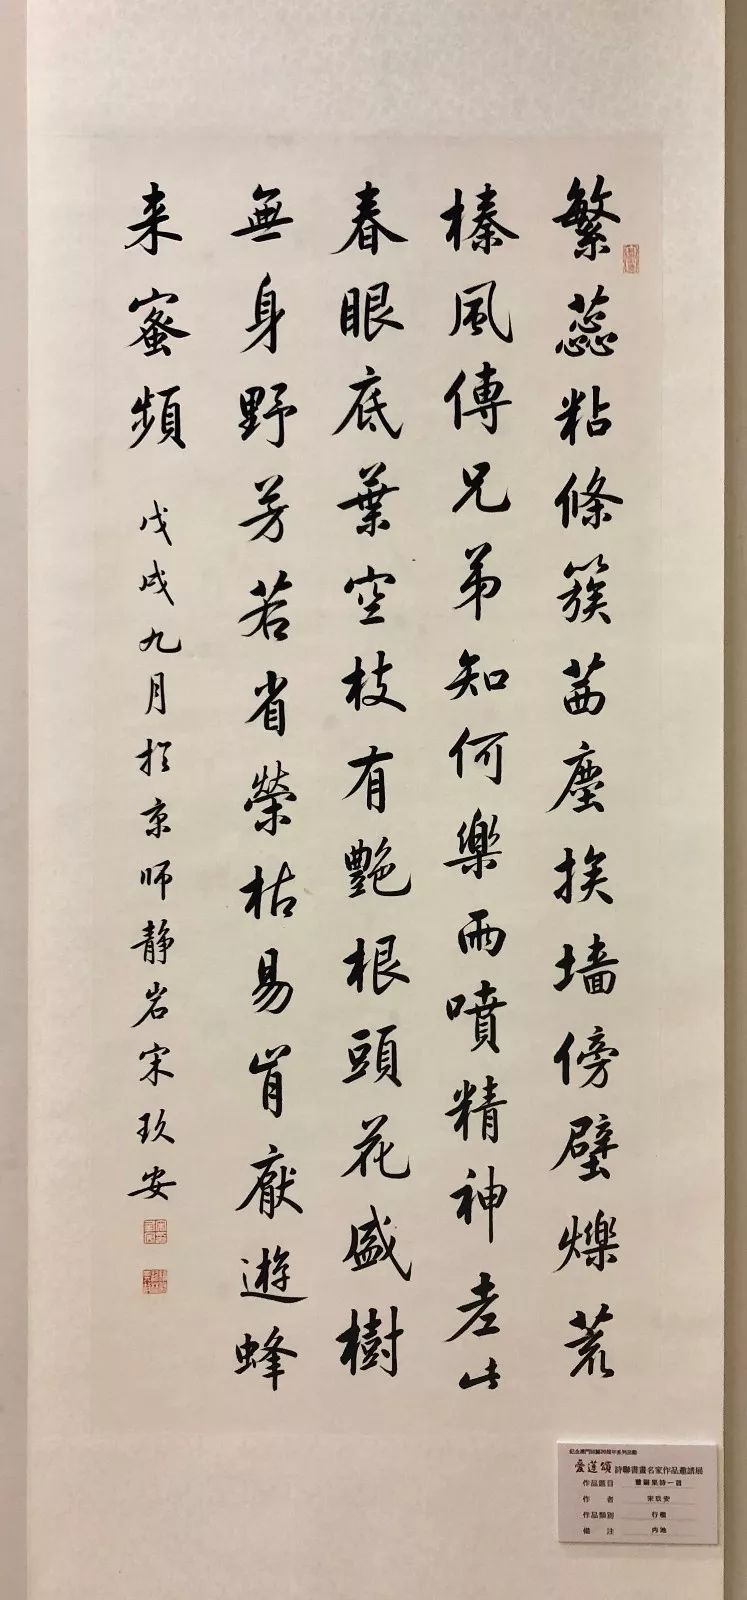 繁蕊粘條簇茜塵挨墻傍壁爍荒
榛風傳兄弟知何樂雨噴精神老此
春眼底葉空枝有艷根頭花盛樹
無身野芳若省榮枯易肯厭遊蜂
来蜜頻
戊戌九月於京師静岩宋玖安
紀念澳門回歸20周年系列活動
愛蓮頌 詩聯書畫名家作品邀請展
作品題目
作者 宋玖安
作品類別 行楷
備注 内地